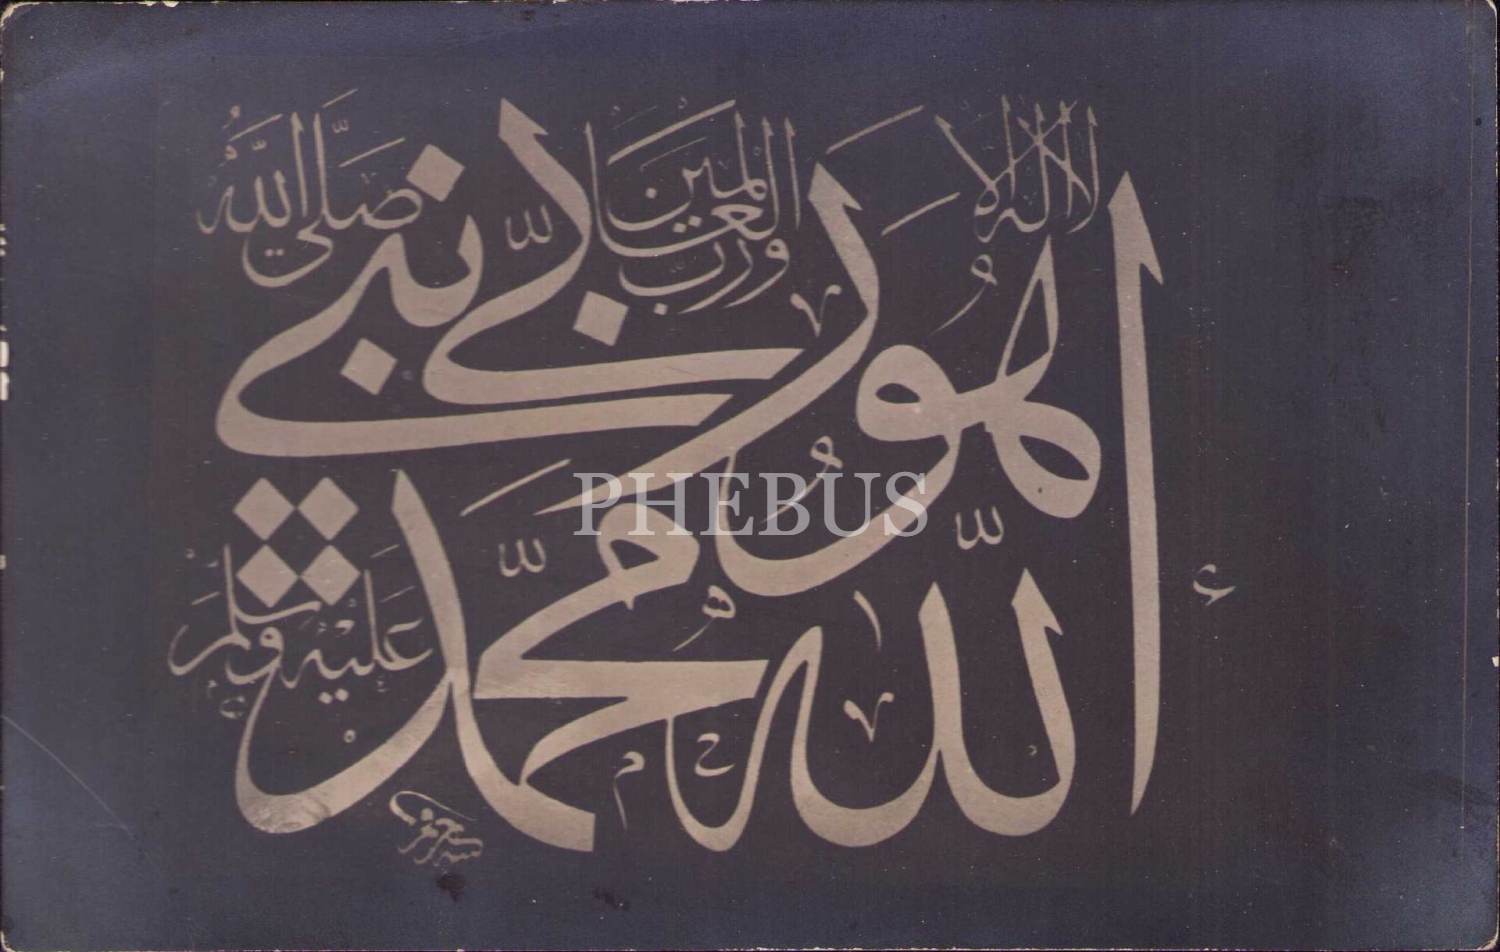 الله لا اله الا
هو ربي
ورب العالمين
محمد نبي
صلى الله
عليه وسلم
PHEBUS